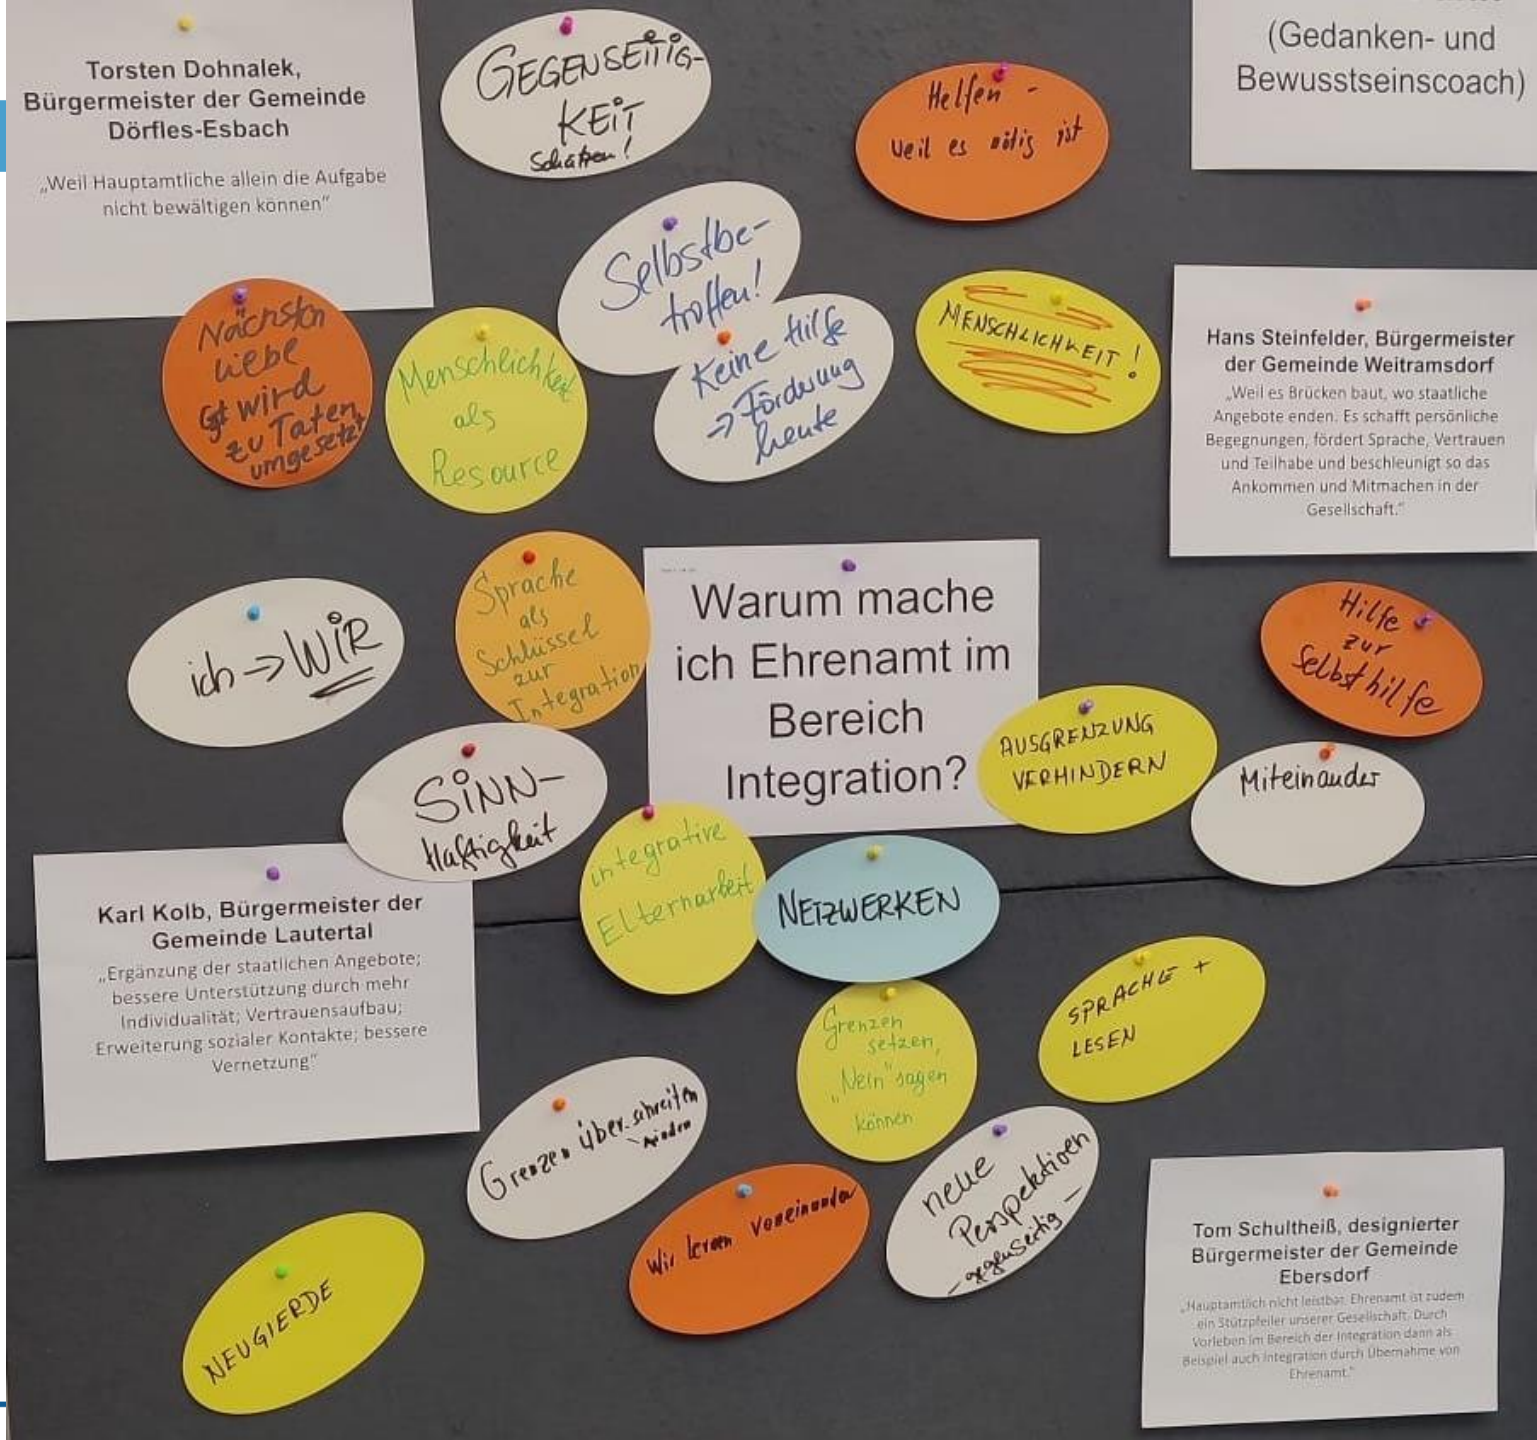 Torsten Dohnalek,
Bürgermeister der Gemeinde
Dörfles-Esbach
„Weil Hauptamtliche allein die Aufgabe
nicht bewältigen können“
GEGENSEITIG-
KEIT
Schätzen!
Helfen -
weil es nötig ist
(Gedanken- und
Bewusstseinscoach)
Selbstbe-
troffen!
Keine Hilfe
→ Förderung
heute
MENSCHLICHKEIT!
Hans Steinfelder, Bürgermeister
der Gemeinde Weitramsdorf
„Weil es Brücken baut, wo staatliche
Angebote enden. Es schafft persönliche
Begegnungen, fördert Sprache, Vertrauen
und Teilhabe und beschleunigt so das
Ankommen und Mitmachen in der
Gesellschaft.“
Nächsten
liebe
wird
zu Taten
umgesetzt
Menschlichkeit
als
Resource
ich → WIR
Sprache
als
Schlüssel
zur
Integration
Warum mache
ich Ehrenamt im
Bereich
Integration?
Hilfe
zur
Selbsthilfe
AUSGRENZUNG
VERHINDERN
Miteinander
SINN-
Haftigkeit
integrative
Elternarbeit
NETZWERKEN
Karl Kolb, Bürgermeister der
Gemeinde Lautertal
„Ergänzung der staatlichen Angebote;
bessere Unterstützung durch mehr
Individualität; Vertrauensaufbau;
Erweiterung sozialer Kontakte; bessere
Vernetzung“
SPRACHE +
LESEN
Grenzen
setzen,
„Nein“ sagen
können
Grenzen über-schreiten
neue
Perspektiven
- gegenseitig -
Wir lernen voneinander
NEUGIERDE
Tom Schultheiß, designierter
Bürgermeister der Gemeinde
Ebersdorf
„Hauptamtlich nicht leistbar. Ehrenamt ist zudem
ein Stützpfeiler unserer Gesellschaft. Durch
Vorleben im Bereich der Integration dann als
Beispiel auch Integration durch Übernahme von
Ehrenamt.“